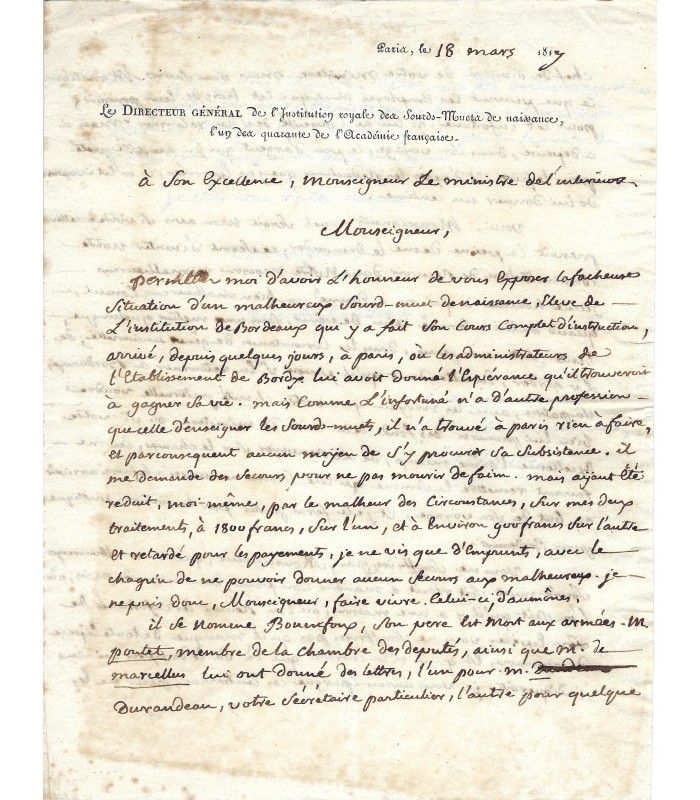 Paris, le 18 mars 1817
Le DIRECTEUR GÉNÉRAL de l'Institution royale des Sourds-Muets de naissance,
l'un des quarante de l'Académie française.
à Son Excellence, Monseigneur Le ministre de l'interieur
Monseigneur,
permettez moi d'avoir L'honneur de vous Exposer la facheuse
Situation d'un malheureux Sourd-muet de naissance, Eleve de
L'institution de Bordeaux qui y a fait Son Cours Complet d'instruction,
arrivé, depuis quelques jours, à paris, où les administrateurs de
l'Etablissement de Bordx lui avoit donné l'Espérance qu'il trouveroit
à gagner Sa vie. mais Comme L'infortuné n'a d'autre profession
que celle d'enseigner les Sourds-muets, il n'a trouvé à paris rien à faire,
et par consequent aucun moyen de S'y procurer Sa Subsistance. il
me demande des Secours pour ne pas mourir de faim. mais ayant Eté
reduit, moi même, par le malheur des Circonstances, Sur mes deux
traitements, à 1800 francs, Sur l'un, et à Environ 900 francs Sur l'autre
Et retardé pour les payements, je ne vis que d'Emprunts, avec le
chagrin de ne pouvoir donner aucun Secours aux malheureux. je
ne puis donc, Monseigneur, faire vivre Celui-ci, d'aumônes.
il Se nomme Son pere Est Mort aux armées. M.
poutet, membre de la chambre des deputés, ainsi que M. de
marcellus lui ont donné des lettres, l'un pour M.
Durandeau, votre Sécrétaire particulier, l'autre pour quelque